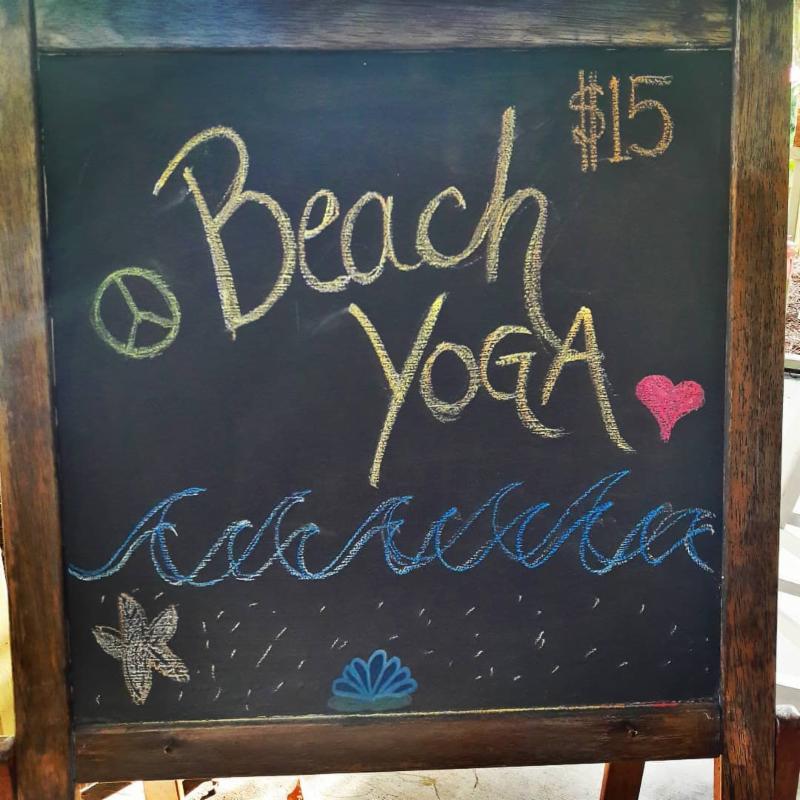 $15
Beach
YOGA